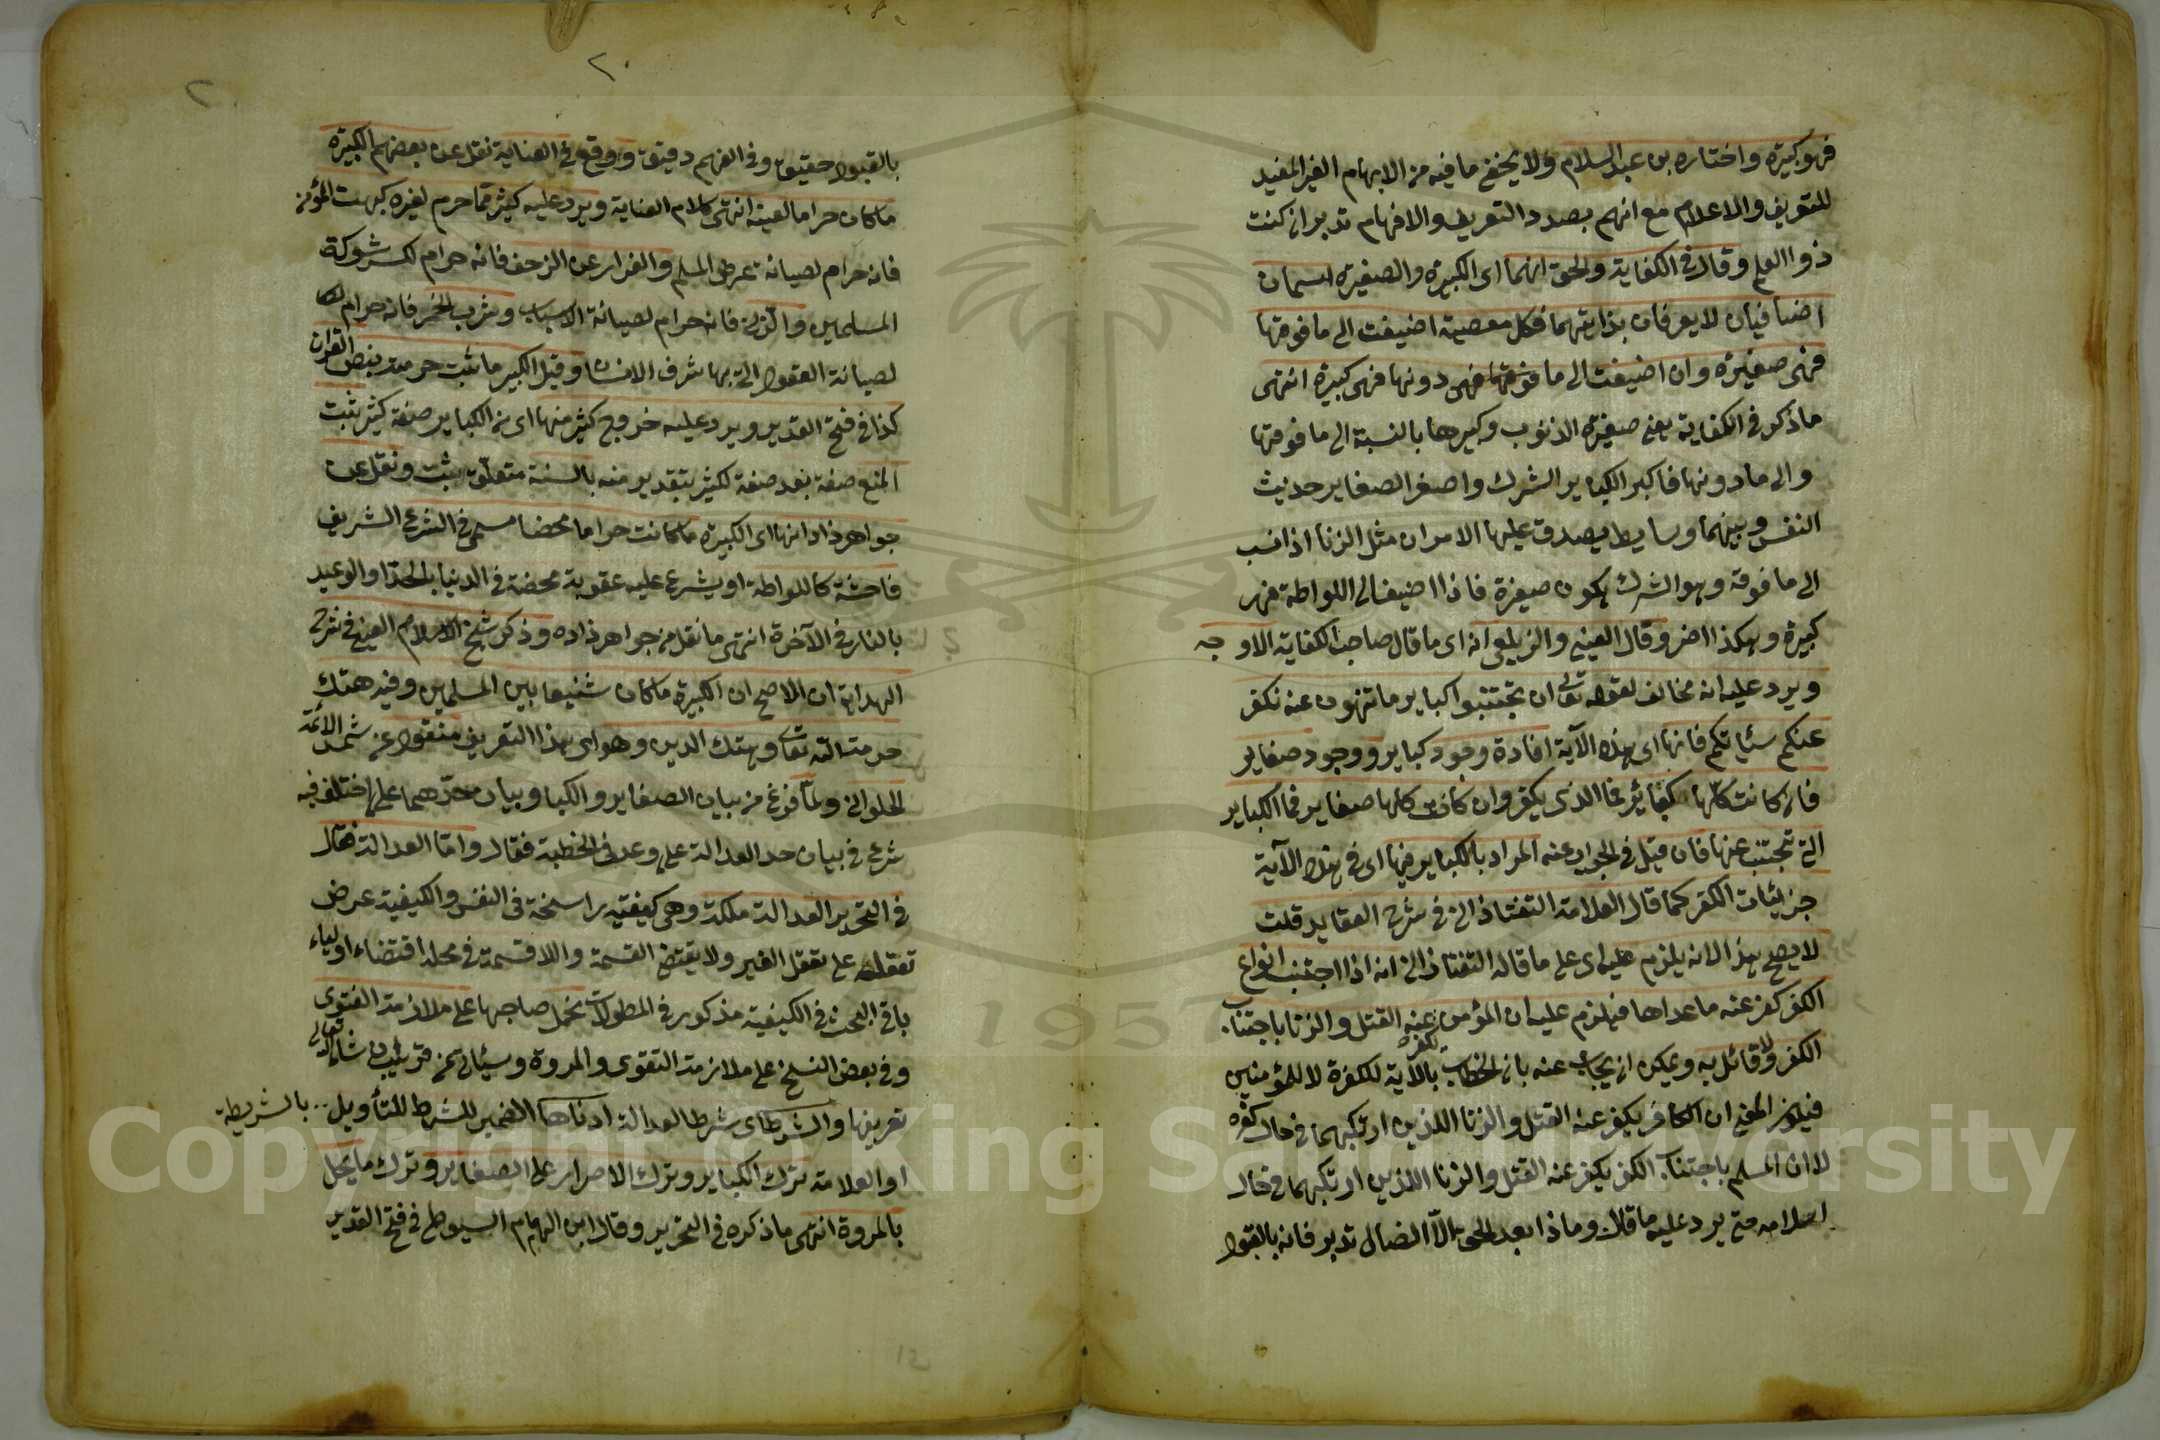 فهو كبيرة واختاره بن عبد السلام ولا يخفى ما فيه من الابهام الغير المفيد
للتعريف والاعلام مع انهم بصدد التعريف والافهام تدبر ان كنت
ذوا العلم وقال في الكفاية والحق انهما اى الكبيرة والصغيرة اسمان
اضافيان لا يعرفان بذاتيهما فكل معصية اضيفت الى ما فوقها
فهى صغيرة وان اضيفت الى ما دونها فهى كبيرة انتهى
ما ذكر في الكفاية يعنى صغيرة الذنوب وكبيرها بالنسبة الى ما فوقها
والى ما دونها فاكبر الكباير الشرك واصغر الصغاير حديث
النفس وبينهما وسايط يصدق عليها الامران مثل الزنا اذا نسب
الى ما فوقه وهو الشرك يكون صغيرة فاذا اضيف الى اللواطة فهر
كبيرة وهكذا اخر وقال العينى والزيلعى انه اى ما قال صاحب الكفاية الاوجه
ويرد عليه انه مخالف لقوله تعالى ان تجتنبوا كباير ما تنهون عنه نكفر
عنكم سئياتكم فانها اى هذه الآية افادة وجود كباير ووجود صغاير
فان كانت كلها كبائر فما الذى يكفر وان كانت كلها صغاير فما الكباير
التى تجتنب عنها فان قيل في الجواب عنه المراد بالكباير فيها اى في هذه الآية
جزئيات الكفر كما قال العلامة التفتازانى في شرح العقايد قلت
لا يصح هذا لانه يلزم عليه اى على ما قاله التفتازانى انه اذا اجتنب انواع
الكفر كفر عنه ما عداها فيلزم عليه ان المؤمن كفر عنه القتل والزنا باجتناب
الكفر ولا قائل به ويمكن ان يجاب عنه بان الخطاب بالآية للكفرة لا للمؤمنين
فيكون المعنى ان الكافر يكفر عنه القتل والزنا اللذين ارتكبهما في حال كفره
لا ان المسلم باجتناب الكفر يكفر عنه القتل والزنا اللذين ارتكبهما في حال
اسلامه حتى يرد عليه ما قلت وماذا بعد الحق الا الضلال تدبر فانه بالقبول
بالقبول حقيق وفى الفهم دقيق ووقع في العناية نقل عن بعضهم الكبيرة
ما كان حراما لعينه انتهى كلام العناية ويرد عليه كثير مما حرم لغيره كبهت المؤمن
فانه حرام لصيانة عرض المسلم والفرار عن الزحف فانه حرام لكسر شوكة
المسلمين والزنى فانه حرام لصيانة الانساب وشرب الخمر فانه حرام
لصيانة العقول التى بها شرف الانسان وقيل الكبير ما ثبت حرمته بنص القرآن
كذا في فتح القدير ويرد عليه خروج كثير منها اى من الكباير صفة كثير يثبت
المنع صفة بعد صفة لكثير بتقدير منه بالسنة متعلق بثبت ونقل عن
جواهر ذاده انها اى الكبيرة ما كانت حراما محضا مسمى في الشرع الشريف
فاحشة كاللواطة او يشرع عليه عقوبة محضة في الدنيا بالحد او الوعيد
بالنار في الآخرة انتهى ما نقل من جواهر ذاده وذكر شيخ الاسلام العينى في شرح
الهداية ان الاصح ان الكبيرة ما كان شنيعا بين المسلمين وفيه هتك
حرمت الله تعالى وهتك الدين وهو اى هذا التعريف منقول عن شمس الائمة
الحلوانى ولما فرغ من بيان الصغاير والكباير وبيان حدهما على ما اختلف فيه
شرع في بيان حد العدالة على وعده في الخطبة فقال واما العدالة فقال
في التحرير العدالة ملكة وهى كيفية راسخة في النفس والكيفية عرض
تعقله على تعقل الغير ولا يقتضى القسمة واللاقسمة في محله اقتضاء اوليا
باقى البحث في الكيفية مذكور في المطولات تحمل صاحبها على ملازمة التقوى
وفى بعض النسخ على ملازمة التقوى والمروة وسيأتى عن قريب ان شاء الله تعالى
تعريفها والشرط اى شرط العدالة ادناها الضمير للشرط للتأويل بالشريطة
او العلامة ترك الكباير وترك الاصرار على الصغاير وترك ما يخل
بالمروة انتهى ما ذكره في التحرير وقال ابن الهمام السيوطى في فتح القدير
Copyright © King Saud University
1957